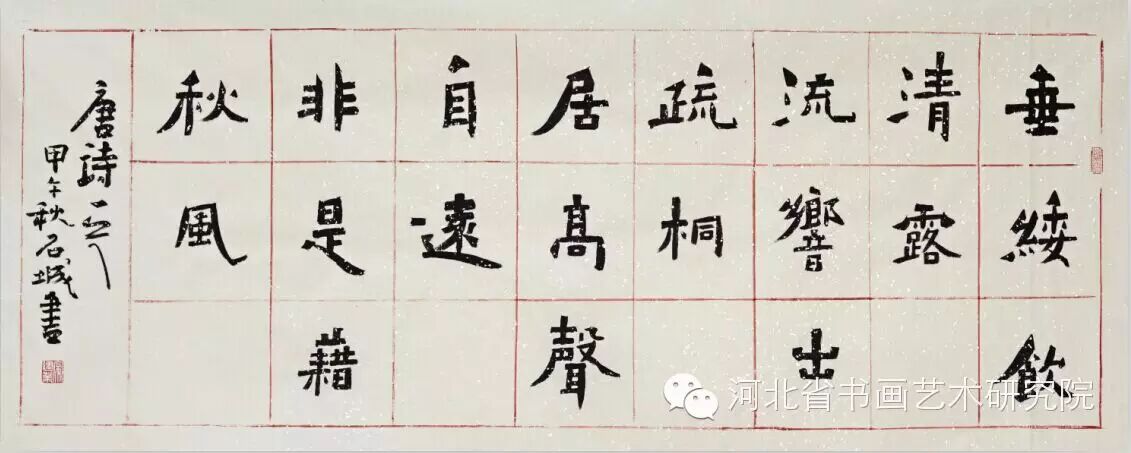 垂緌飲
清露
流響出
疏桐
居高聲
自遠
非是藉
秋風
唐詩一首
甲午秋石城書
河北省书画艺术研究院